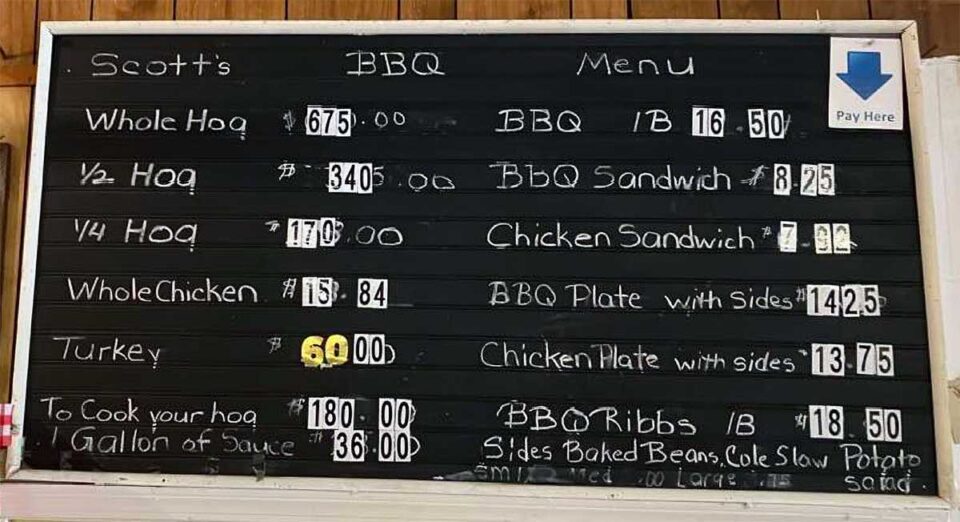 Scott's BBQ Menu
Pay Here
Whole Hog $ 675.00
1/2 Hog $ 340.00
1/4 Hog $ 170.00
Whole Chicken $ 15.84
Turkey $ 60 00
To Cook your hog $ 180.00
1 Gallon of Sauce $ 36.00
BBQ lB 16.50
BbQ Sandwich $ 8.25
Chicken Sandwich $ 7.92
BBQ Plate with Sides $ 14 25
Chicken Plate with sides 13.75
BBQ Ribbs lB $ 18.50
Sides Baked Beans, Cole Slaw Potato
salad.
Med .00 Large .75